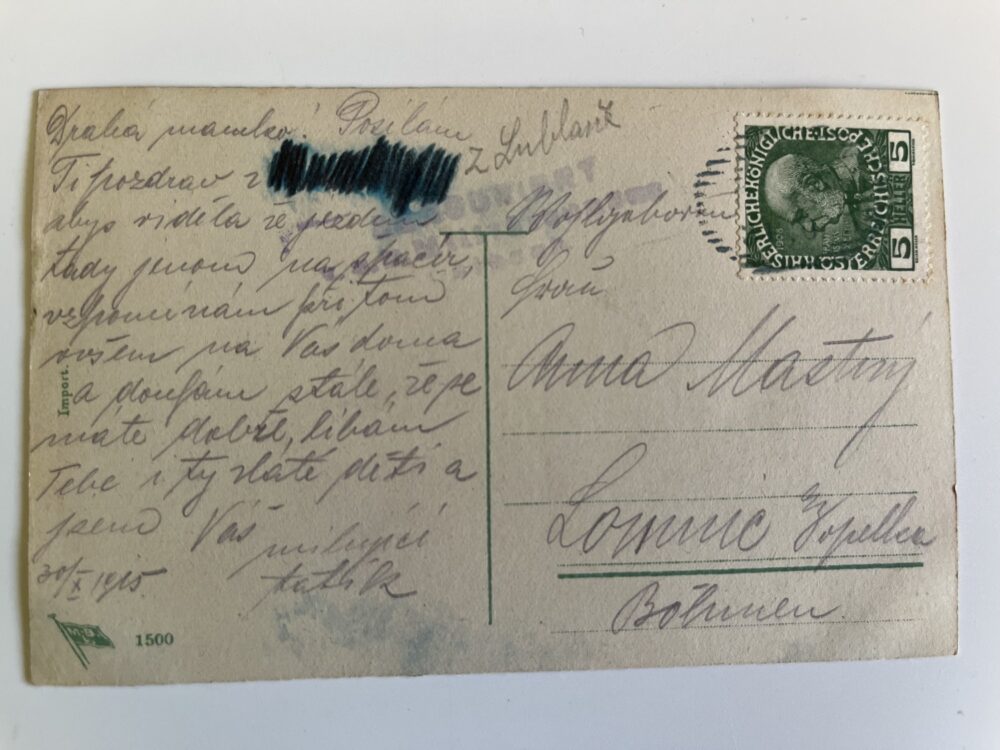 Drahá mamko! Posílám
z Lublaně
Ti pozdrav z
abys viděla že jezdím
tady jenom na špacír,
vzpomínám při tom
ovšem na Vás doma
a doufám stále, že se
máte dobře, líbám
Tebe i ty zlaté děti a
jsem Váš milující
tatík
30/X 1915.
Import.
1500
Wohlgeboren
Frau
Anna
Lomnic Popelka
Böhmen
KAISERLICHE KÖNIGLICHE ÖSTERREICHISCHE POST
5 HELLER 5